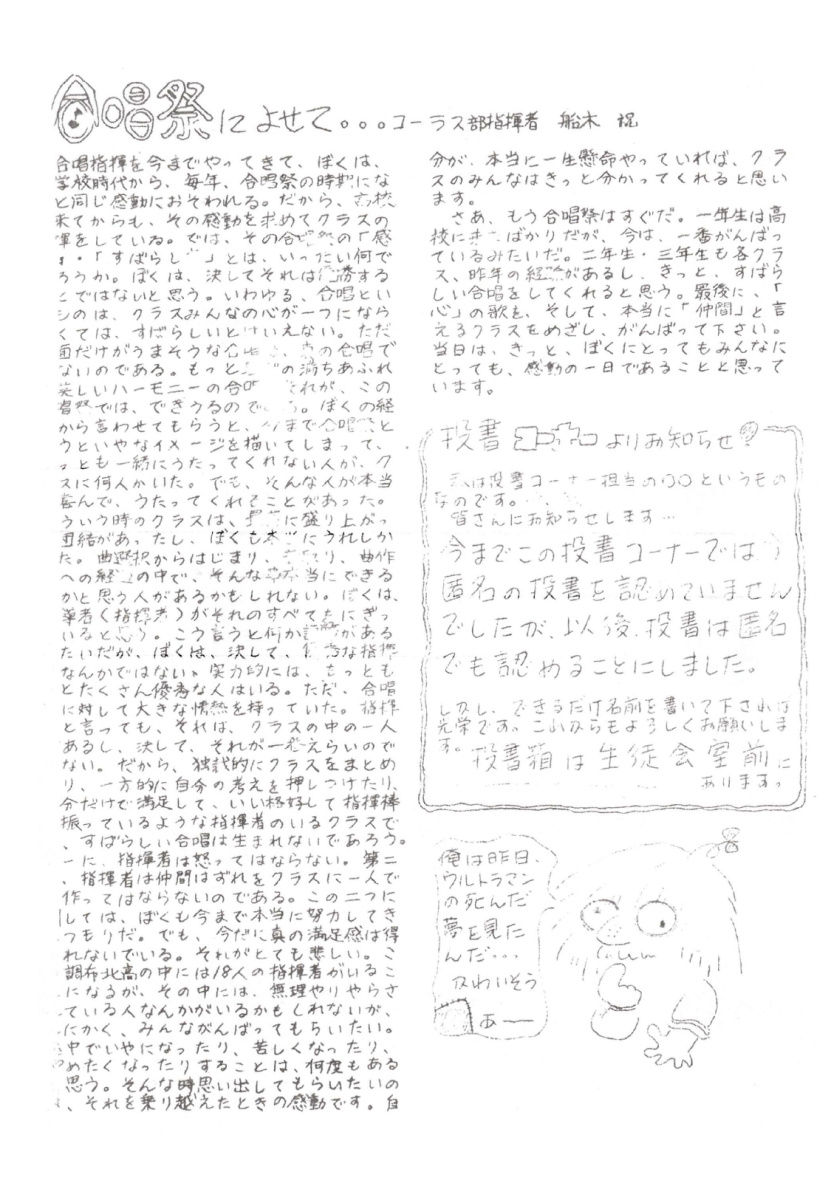 合唱祭によせて。。。コーラス部指揮者 船木
合唱指揮を今までやってきて、ぼくは、
学校時代から、毎年、合唱祭の時期にな
と同じ感動におそわれる。だから、高校
来てからも、その感動を求めてクラスの
揮をしている。では、その合唱祭の「感
・「すばらしさ」とは、いったい何で
ろうか。ぼくは、決してそれは優勝する
とではないと思う。いわゆる、合唱とい
ものは、クラスみんなの心が一つになら
くては、すばらしいとはいえない。ただ
面だけがうまそうな合唱は、真の合唱で
ないのである。もっと の満ちあふれ
美しいハーモニーの合唱 それが、この
唱祭では、できうるので る。ぼくの経
から言わせてもらうと、今まで合唱祭と
うといやなイメージを描いてしまって、
っとも一緒にうたってくれない人が、ク
スに何人かいた。でも、そんな人が本当
喜んで、うたってくれたことがあった。
ういう時のクラスは、 に盛り上がっ
団結があったし、ぼくも本当にうれしか
た。曲選択からはじまり、 り、曲作
への経 の中で、そんな事本当にできる
かと思う人があるかもしれない。ぼくは、
導者(指揮者)がそれのすべてをにぎっ
いると思う。こう言うと何か がある
たいだが、ぼくは、決して、優秀な指揮
なんかではない。実力的には、もっとも
とたくさん優秀な人はいる。ただ、合唱
に対して大きな情熱を持っていた。指揮
と言っても、それは、クラスの中の一人
あるし、決して、それが一番えらいので
ない。だから、独裁的にクラスをまとめ
り、一方的に自分の考えを押しつけたり、
分だけで満足して、いい格好して指揮棒
振っているような指揮者のいるクラスで
、すばらしい合唱は生まれないであろう。
一に、指揮者は怒ってはならない。第二
、指揮者は仲間はずれをクラスに一人で
作ってはならないのである。この二つに
しては、ぼくも今まで本当に努力してき
つもりだ。でも、今だに真の満足感は得
れないでいる。それがとても悲しい。こ
調布北高の中には18人の指揮者がいるこ
になるが、その中には、無理やりやらさ
ている人なんかがいるかもしれないが、
にかく、みんながんばってもらいたい。
中でいやになったり、苦しくなったり、
やめたくなったりすることは、何度もある
思う。そんな時思い出してもらいたいの
、それを乗り越えたときの感動です。自
分が、本当に一生懸命やっていれば、クラ
スのみんなはきっと分かってくれると思い
ます。
さあ、もう合唱祭はすぐだ。一年生は高
校に来たばかりだが、今は、一番がんばっ
ているみたいだ。二年生・三年生も各クラ
ス、昨年の経験があるし、きっと、すばら
しい合唱をしてくれると思う。最後に、「
心」の歌を、そして、本当に「仲間」と言
えるクラスをめざし、がんばって下さい。
当日は、きっと、ぼくにとってもみんなに
とっても、感動の一日であることと思って
います。
投書コーナーよりお知らせ
私は投書コーナー担当の〇〇というもの
なのです。
皆さんにお知らせします…
今までこの投書コーナーでは
匿名の投書を認めていません
でしたが、以後、投書は匿名
でも認めることにしました。
しかし、できるだけ名前を書いて下されば
光栄です。これからもよろしくお願いしま
す。
投書箱は生徒会室前に
あります。
俺は昨日、
ウルトラマン
の死んだ
夢を見た
んだ…
かわいそう
あ──